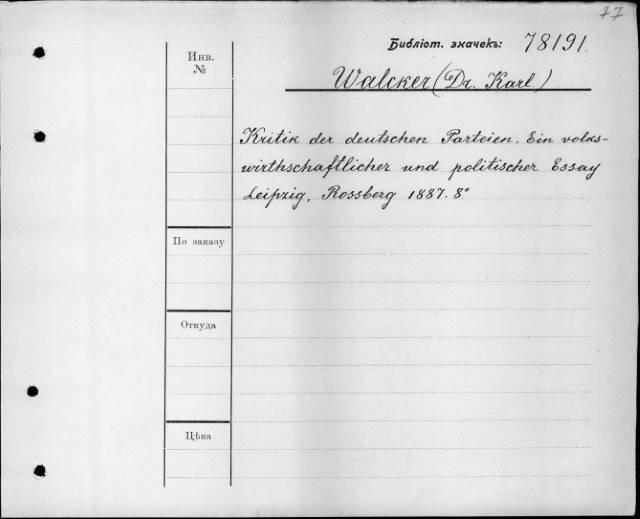 77
Библіот. значекъ: 78191.
Инв.
№
Walcker (Dr. Karl.)
Kritik der deutschen Parteien. Ein volks-
wirthschaftlicher und politischer Essay
Leipzig, Rossberg 1887. 8°
По заказу
Откуда
Цѣна